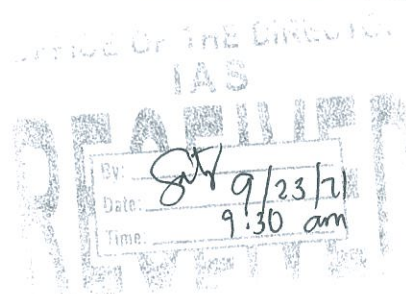 OFFICE OF THE DIRECTOR
IAS
RECEIVED
By:
Date: 9/23/21
Time: 9:30 am